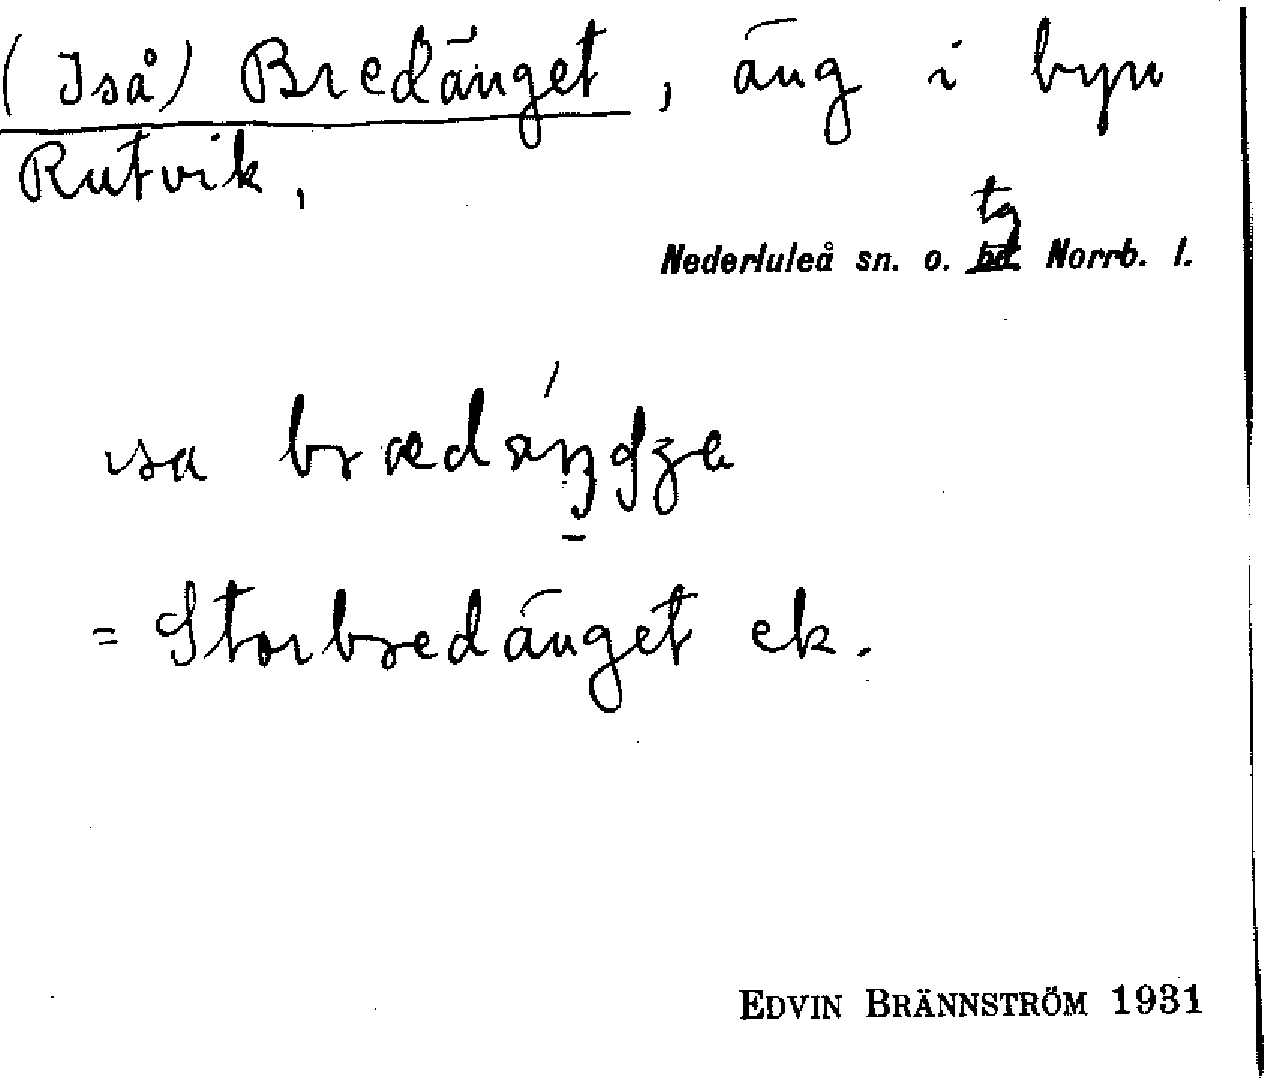 (Iså) Bredänget, äng i byn
Rutvik,
tg
Nederluleå sn. o. hd. Norrb. l.
ısa brædäŋdʒe
= Storbredänget ek.
EDVIN BRÄNNSTRÖM 1931